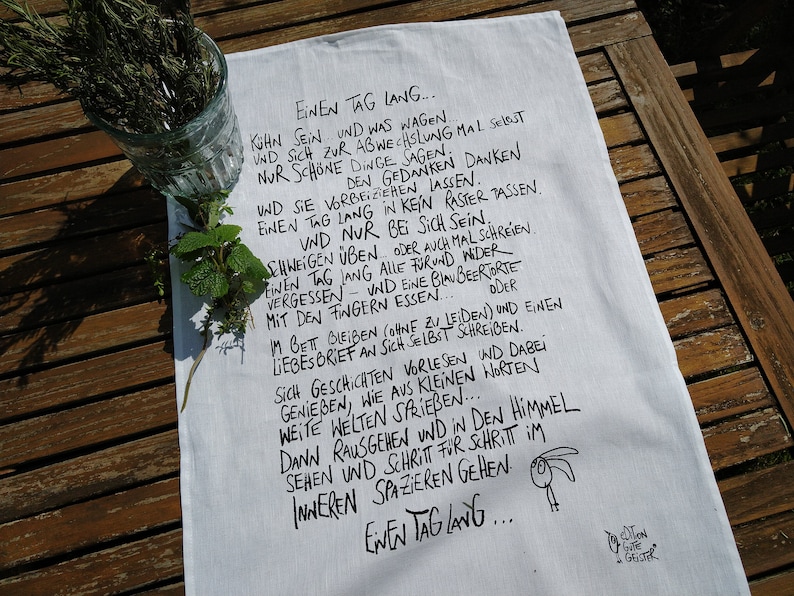 EINEN TAG LANG...
KÜHN SEIN... UND WAS WAGEN...
UND SICH ZUR ABWECHSLUNG MAL SELBST
NUR SCHÖNE DINGE SAGEN.
DEN GEDANKEN DANKEN
UND SIE VORBEIZIEHEN LASSEN.
EINEN TAG LANG IN KEIN RASTER PASSEN.
UND NUR BEI SICH SEIN.
SCHWEIGEN ÜBEN... ODER AUCH MAL SCHREIEN.
EINEN TAG LANG ALLE FÜR UND WIDER
VERGESSEN – UND EINE BLAUBEERTORTE
MIT DEN FINGERN ESSEN... ODER
IM BETT BLEIBEN (OHNE ZU LEIDEN) UND EINEN
LIEBESBRIEF AN SICH SELBST SCHREIBEN.
SICH GESCHICHTEN VORLESEN UND DABEI
GENIEßEN, WIE AUS KLEINEN WORTEN
WEITE WELTEN SPRIEßEN...
DANN RAUSGEHEN UND IN DEN HIMMEL
SEHEN UND SCHRITT FÜR SCHRITT IM
INNEREN SPAZIEREN GEHEN.
EINEN TAG LANG...
EDITION
GUTE
GEISTER